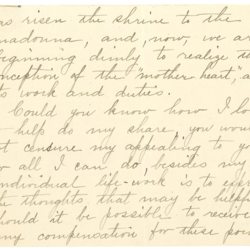 as risen the shrine to the
madonna, and, now, we are
beginning dimly to realize
conception of the "mother heart,
its work and duties.
Could you know how I lo
help do my share, you wou
t censure my appealing to yo
all I can do, besides my
individual life-work is to exp
he thoughts that may be helpf
hould it be possible to receive
my compensation for these poe